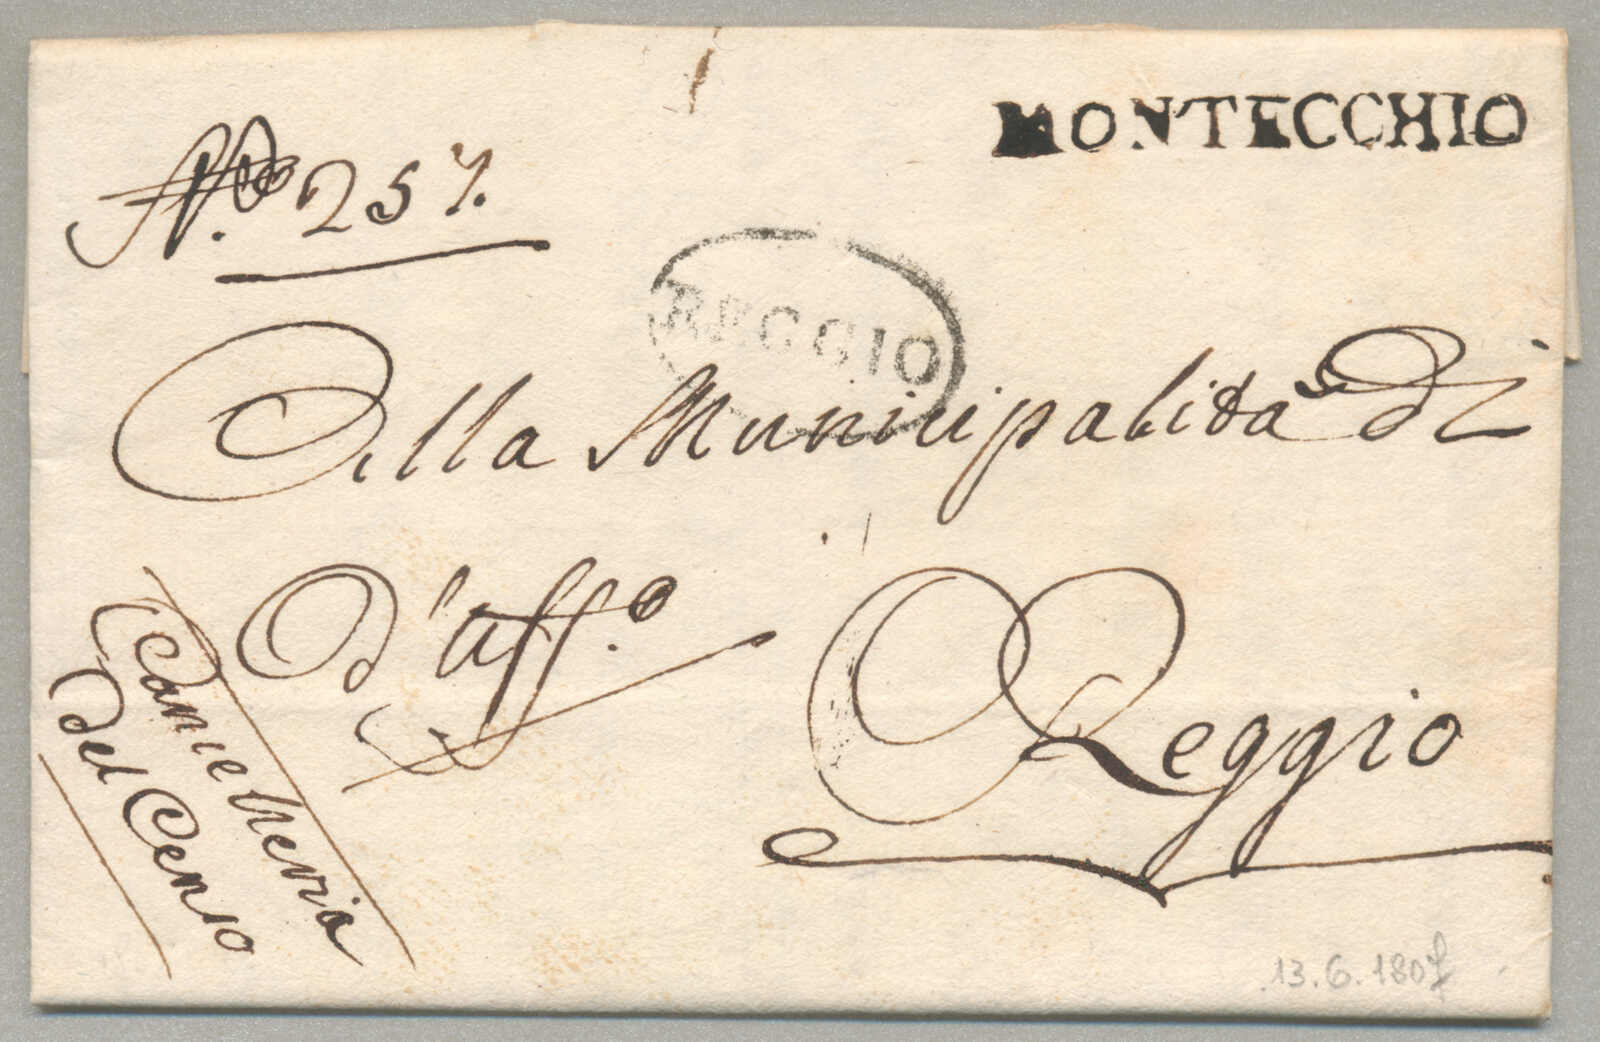 MONTECCHIO
N.o 257.
REGGIO
Alla Municipalità di
d'uff.o
Reggio
Cancelleria
del Censo
13.6.1807